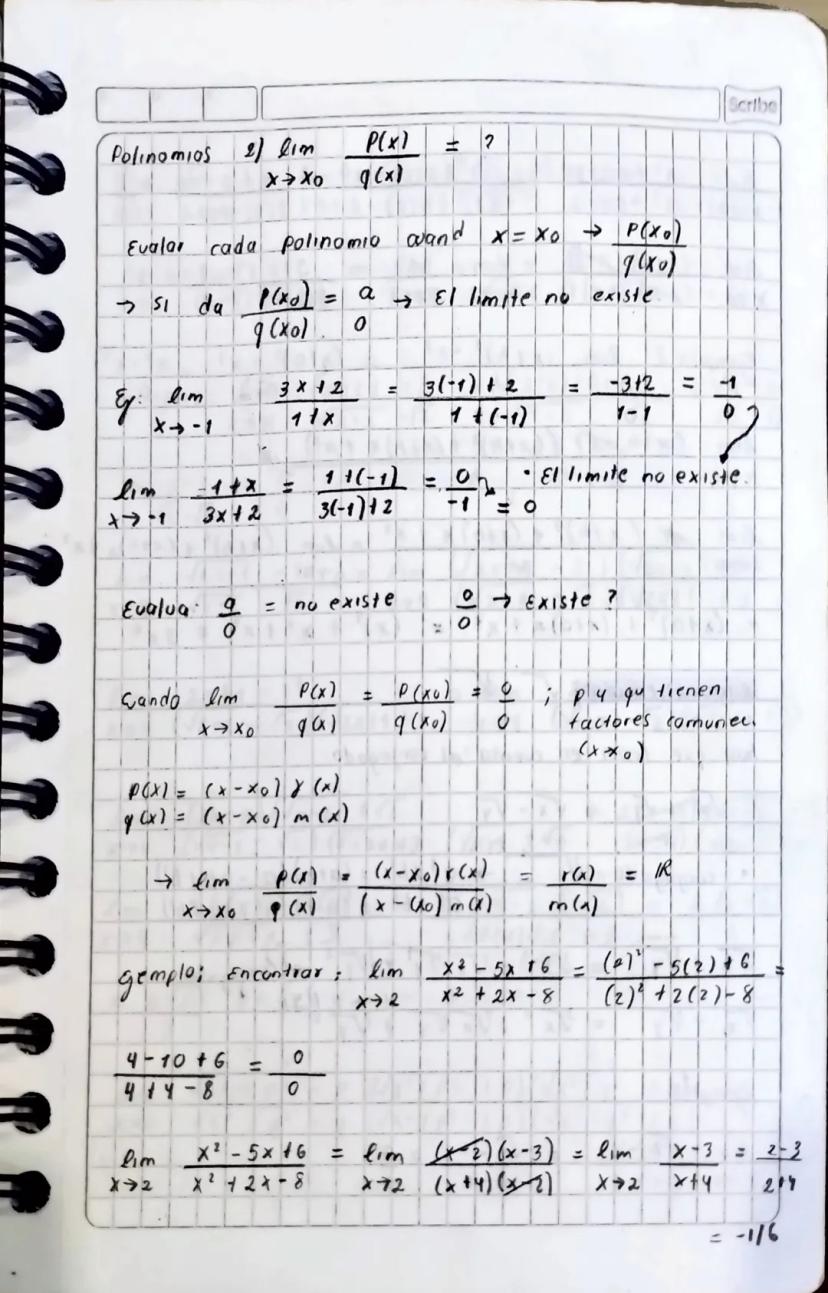 Scribe
Polinomios 2) lim x→x0 P(x)/q(x) = ?
Evaluar cada polinomio cuand x = x0 → P(x0)/q(x0)
→ si da P(x0)/q(x0) = a/0 → El limite no existe
Ej: lim x→-1 3x+2/1+x = 3(-1)+2/1+(-1) = -3+2/1-1 = -1/0
· El limite no existe.
lim x→-1 -1+x/3x+2 = 1+(-1)/3(-1)+2 = 0/-1 = 0
Evalua: a/0 = no existe = 0/0 → Existe ?
Cando lim x→x0 P(x)/q(x) = P(x0)/q(x0) = 0/0 ; p y q tienen
factores comunes
P(x) = (x-x0) r(x)
q(x) = (x-x0) m(x)
→ lim x→x0 p(x)/q(x) = (x-x0)r(x)/(x-(x0)m(x) = r(x)/m(x) = ℝ
Ejemplo; Encontrar; lim x→2 x²-5x+6/x²+2x-8 = (2)²-5(2)+6/(2)²+2(2)-8 =
4-10+6/4+4-8 = 0/0
lim x→2 x²-5x+6/x²+2x-8 = lim x→2 (x-2)(x-3)/(x+4)(x-2) = lim x→2 x-3/x+4 = 2-3/2+4
= -1/6